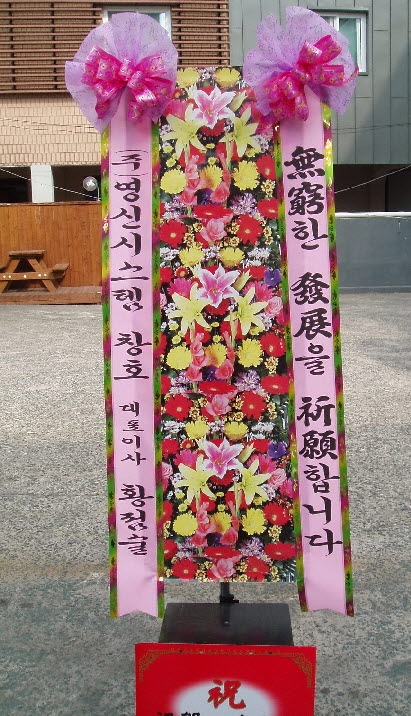 無窮한 發展을 祈願합니다
(주)명신시스템 창호 대표이사 황점술
祝